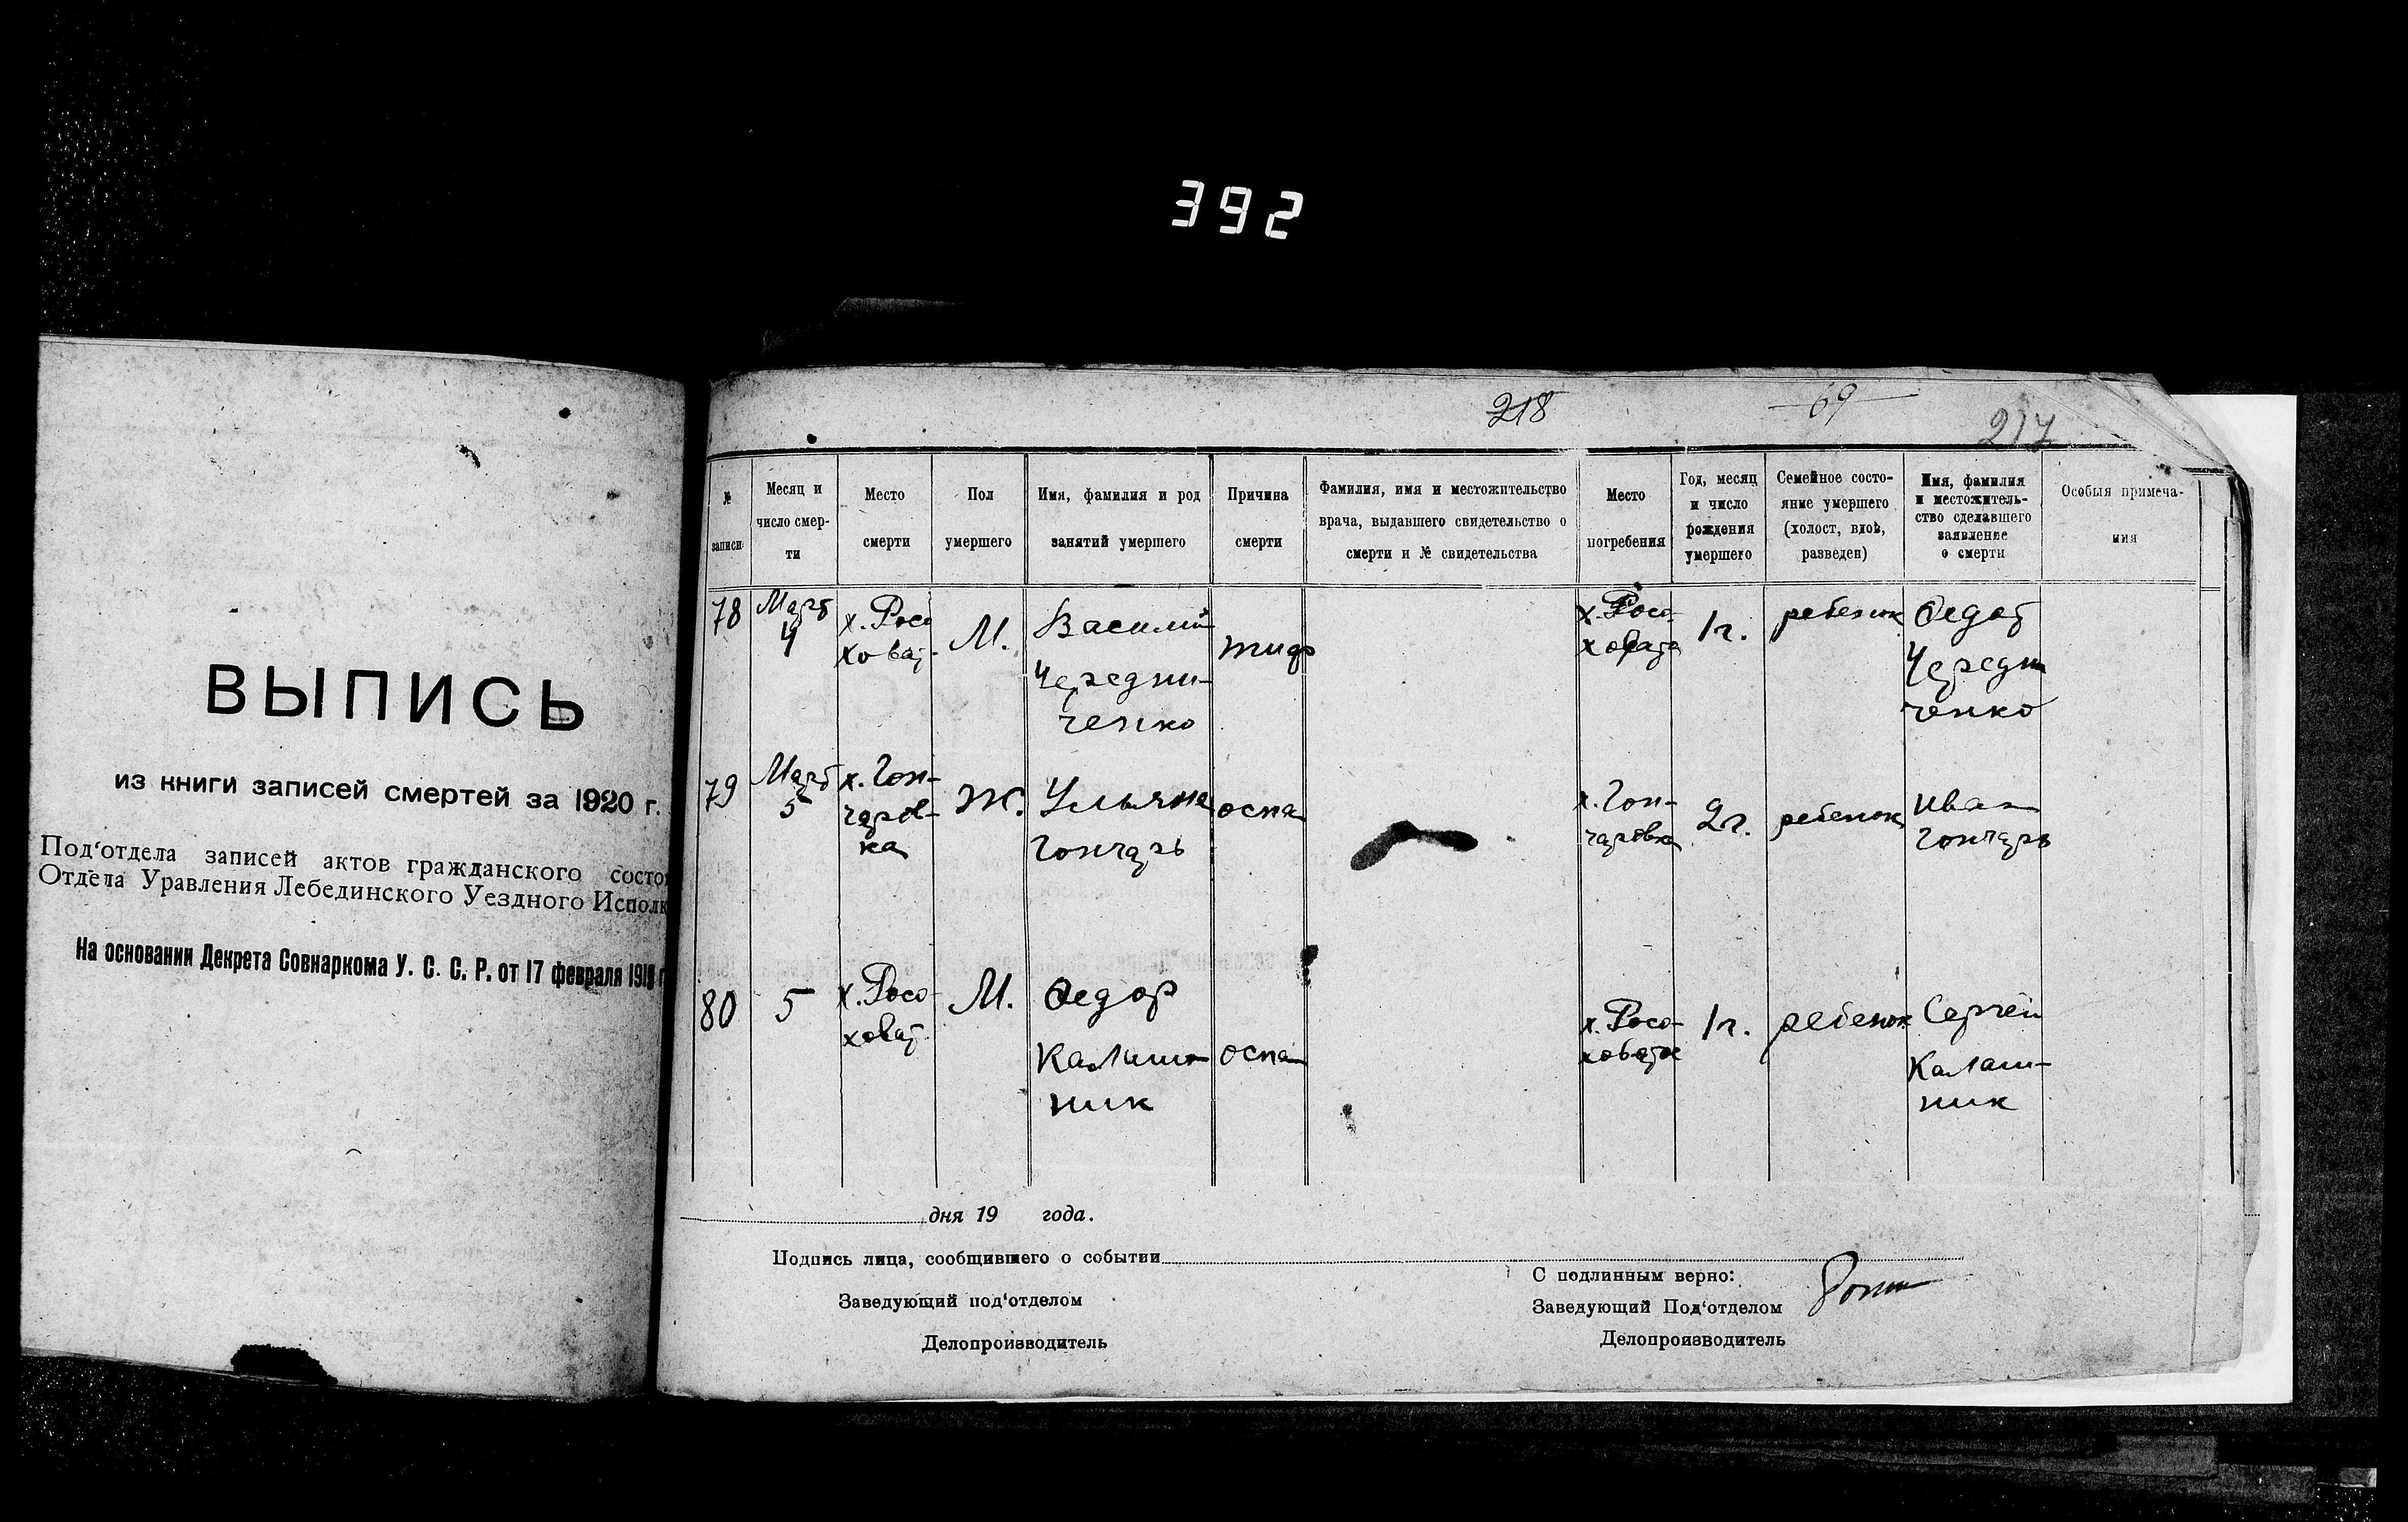 392
ВЫПИСЬ
из книги записей смертей за 1920 г.
Под‘отдела записей актов гражданского состо
Отдела Уравления Лебединского Уездного Исполк
На основании Декрета Совнаркома У. С. С. Р. от 17 февраля 1919 г
218 69 217
№ записи
Месяц и число смер- ти
Место смерти
Пол умершего
Имя, фамилия и род занятий умершего
Причина смерти
Фамилия, имя и местожительство врача, выдавшего свидетельство о смерти и № свидетельства
Место погребения
Год, месяц и число рождения умершего
Семейное состо- яние умершего (холост, вдов, разведен)
Имя, фамилия и местожитель- ство сделавшего заявление о смерти
Особыя примеча- ния
78 Март 4 х. Росо ховат. М. Василий Чередни- ченко тиф х. Росо- ховата 1 г. ребенок Федот Чередни ченко
79 Март 5 х. Гон- чаров- ка Ж. Ульяна Гончарь оспа х. Гон- чаровка 2 г. ребенок Иван Гончарь
80 5 х. Росо- ховат. М. Федор Калаш- ник оспа х. Росо- ховатое 1 г. ребенок Сергей Калаш- ник
дня 19 года.
Подпись лица, сообщившего о событии
С подлинным верно:
Заведующий под‘отделом
Заведующий Под‘отделом
Делопроизводитель
Делопроизводитель